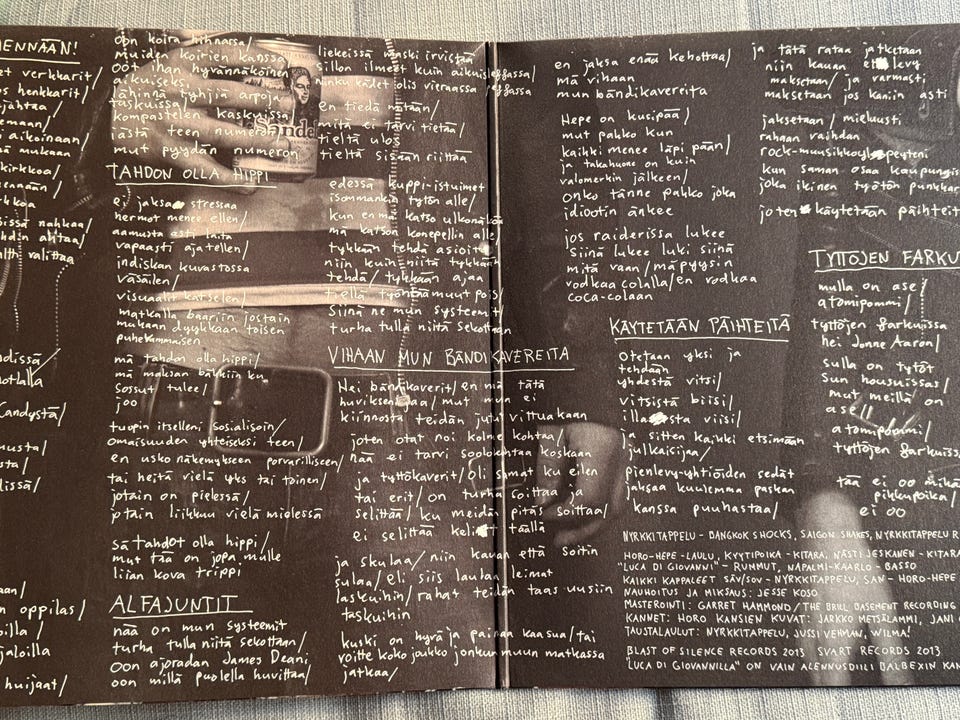 MENNÄÄN!
et verkkarit/
os henkkarit/
jahtaa/
emaan/
i aikoinaan
ä mukaan
kirkkoa/
eenään/
kkoa
issä nahkaa/
hdin ahtaa/
valittaa
dissä
otlalla
Candystä/
musta/
sta/
lissä/
aan/
n oppilas/
oilla/
jaloilla
huijaat/
oon koira hihnassa/
muiden koirien kanssa
oot ihan hyvännäköinen
aikuiseks/
lähinnä tyhjiä arpoja
taskuissa/
kompastelen kaskuissa
iästä teen numeron/
mut pyydän numeron
TAHDON OLLA HIPPI
ei jaksa stressaa
hermot menee ellen/
aamusta asti laita
vapaasti ajatellen/
indiskan kuvastossa
väsäilen/
visuaalit katselen/
matkalla baariin jostain
mukaan dyykkaan toisen
puhekummaisen
mä tahdon olla hippi/
mä maksan bäkkiin ku
sossut tulee/
joo
tuopin itselleni sosialisoin/
omaisuuden yhteiseksi teen/
en usko näkemykseen porvarilliseen/
tai heitä vielä yks tai toinen/
jotain on pielessä/
jotain liikkuu vielä mielessä
sä tahdot olla hippi/
mut tää on jopa mulle
liian kova trippi
ALFAJUNTIT
nää on mun systeemit
turha tulla niitä sekottaan/
oon ajoradan James Deani
oon millä puolella huvittaa/
liekeissä änski irvistää
sillon ilmeet kuin aikuisleffassa/
niinku kädet olis vieraassa leffassa
en tiedä mitään/
mitä ei tarvi tietää/
tieltä ulos
tieltä sisään riittää
edessä kuppi-istuimet
isommankin tytön alle/
kun en mä katso ulkonäköä
mä katson konepellin alle/
tykkään tehdä asioita
niin kuin niitä tykkään
tehdä/tykkään ajaa
tiellä työntää muut pois/
siinä ne mun systeemit/
turha tulla niitä sekottaan
VIHAAN MUN BÄNDIKAVEREITA
Hei bändikaverit/en mä tätä
huvikseni jaa/mut mun ei
kiinnosta teidän jutut vittuakaan
joten otat noi kolme kohtaa/
nää ei tarvi soolokohtaa koskaan
ja tyttökaverit/oli samat ku eilen
tai erit/on turha soittaa ja
selittää/ku meidän pitäs soittaa/
ei selittää kelit täällä
ja skulaa/niin kauan että soitin
sulaa/eli siis laulan leimat
laskuihin/rahat teidän taas uusiin
taskuihin
kuski on hyvä ja painaa kaasua/tai
voitte koko joukko jonkun muun matkassa
jatkaa/
en jaksa enää kehottaa/
mä vihaan
mun bändikavereita
Hepe on kusipää/
mut pakko kun
kaikki menee läpi pään/
ja takahuone on kuin
valomerkin jälkeen/
onko tänne pakko joka
idiootin änkee
jos raiderissa lukee
siinä lukee luki siinä
mitä vaan/mä pyysin
vodkaa colalla/en vodkaa
coca-colaan
KÄYTETÄÄN PÄIHTEITÄ
Otetaan yksi ja
tehdään
yhdestä vitsi/
vitsistä biisi/
illasta viisi/
ja sitten kaikki etsimään
julkaisijaa/
pienlevy-yhtiöiden sedät
jaksaa kuulemma paskan
kanssa puuhastaa/
ja tätä rataa jatketaan
niin kauan et levy
maksetaan/ja varmasti
maksetaan jos kaniin asti
jaksetaan/mieluusti
rahaan vaihdan
rock-muusikko
kun saman osaa kaupungis
joka ikinen työtön punkkar
joten käytetään päihteit
TYTTÖJEN FARKU
mulla on ase/
atomipommi/
tyttöjen farkuissa
hei Jonne Aaron/
sulla on tytöt
sun housuissas/
mut meillä on
ase//
atomipommi/
tyttöjen farkuissa
tää ei oo mikä
pikkupoika/
ei oo
NYRKKITAPPELU - BANGKOK SHOCKS, SAIGON SHAKES, NYRKKITAPPELU R
HORO-HEPE - LAULU, KYYTIPOIKA - KITARA, NÄSTI JESKANEN - KITARA
"LUCA DI GIOVANNI" - RUMMUT, NAPALMI-KAARLO - BASSO
KAIKKI KAPPALEET SÄV/SOV - NYRKKITAPPELU, SAN - HORO-HEPE
NAUHOITUS JA MIKSAUS: JESSE KOSO
MASTEROINTI: GARRET HAMMOND/THE BRILL BASEMENT RECORDING
KANNET: HORO KANSIEN KUVAT: JARKKO METSÄLAMMI, JANI
TAUSTALAULUT: NYRKKITAPPELU, JUSSI VEHMAN, WILMA!
BLAST OF SILENCE RECORDS 2013 SVART RECORDS 2013
"LUCA DI GIOVANNILLA" ON VAIN ALENNUSDIILI BALBEXIN KAN